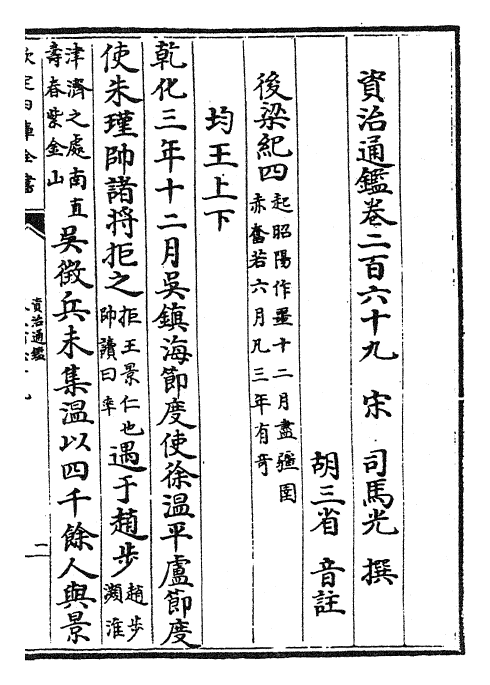 資治通鑑卷二百六十九　宋　司馬光　撰
胡三省　音註
後梁紀四起昭陽作噩十二月盡彊圉赤奮若六月凡三年有奇
均王上下
乾化三年十二月吳鎮海節度使徐溫平盧節度
使朱瑾帥諸將拒之拒王景仁也帥讀曰率遇于趙步趙步瀕淮
津濟之處南直壽春紫金山吳徵兵未集溫以四千餘人與景
資治通鑑
二